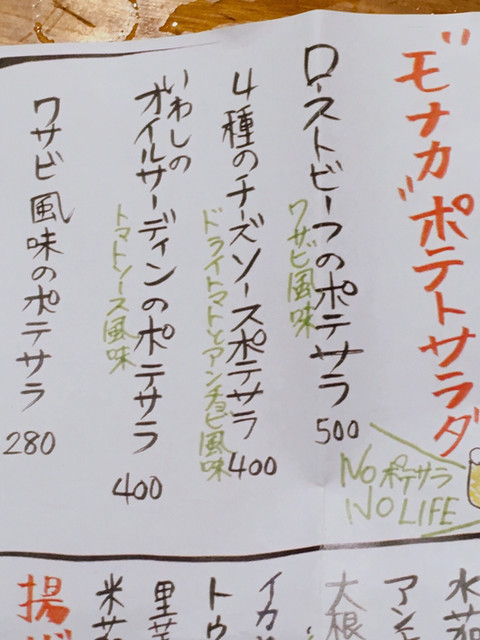 "モナカ"ポテトサラダ
ローストビーフのポテサラ
ワサビ風味
500
4種のチーズソースポテサラ
ドライトマトとアンチョビ風味
400
いわしの
オイルサーディンのポテサラ
トマトソース風味
400
ワサビ風味のポテサラ
280
No ポテサラ
NO LIFE
アン
大根
イカ
トウ
揚げ